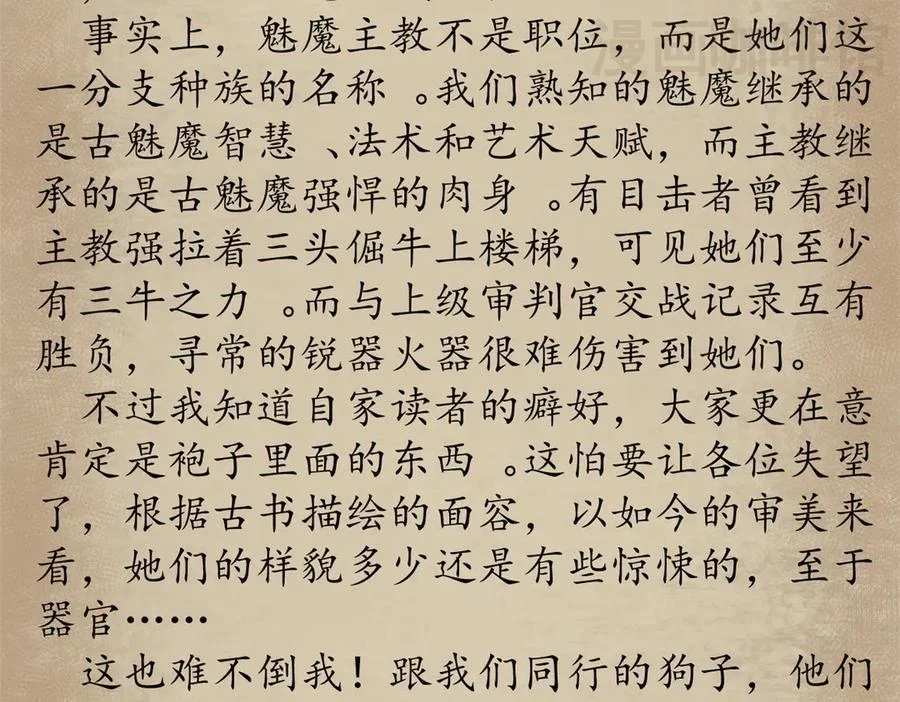 事实上，魅魔主教不是职位，而是她们这
一分支种族的名称 。我们熟知的魅魔继承的
是古魅魔智慧 、法术和艺术天赋，而主教继
承的是古魅魔强悍的肉身 。有目击者曾看到
主教强拉着三头倔牛上楼梯，可见她们至少
有三牛之力 。而与上级审判官交战记录互有
胜负，寻常的锐器火器很难伤害到她们。
不过我知道自家读者的癖好，大家更在意
肯定是袍子里面的东西 。这怕要让各位失望
了，根据古书描绘的面容，以如今的审美来
看，她们的样貌多少还是有些惊悚的，至于
器官……
这也难不倒我！跟我们同行的狗子，他们